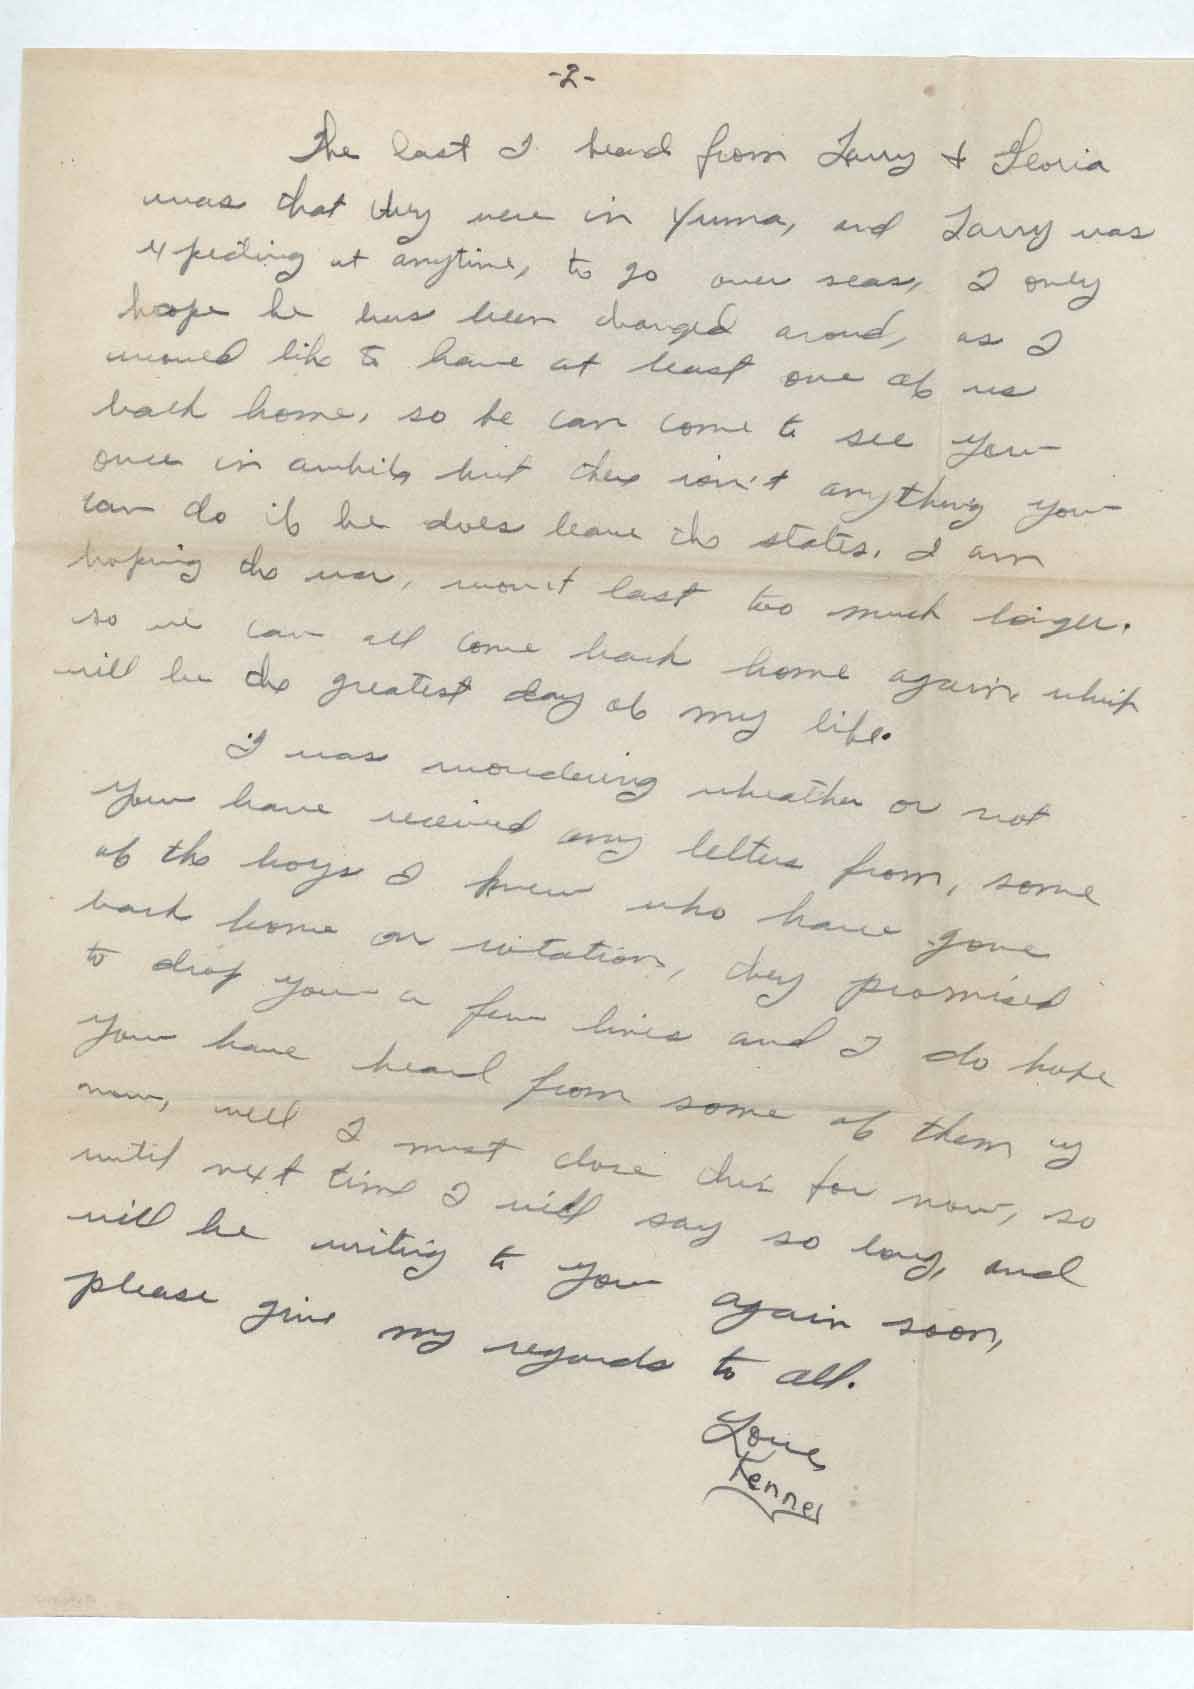 -2-
The last I heard from Larry & Gloria
was that they were in Yuma, and Larry was
expecting at anytime, to go over seas, I only
hope he has been changed around, as I
would like to have at least one of us
back home, so he can come to see you
once in awhile, but there isn't anything you
can do if he does leave the states. I am
hoping the war, won't last too much longer.
so we can all come back home again, which
will be the greatest day of my life.
I was wondering wheather or not
you have received any letters from, some
of the boys I knew who have gone
back home on rotation, they promised
to drop you a few lines and I do hope
you have heard from some of them by
now, well I must close this for now, so
until next time I will say so long, and
will be writing to you again soon,
please give my regards to all.
Love,